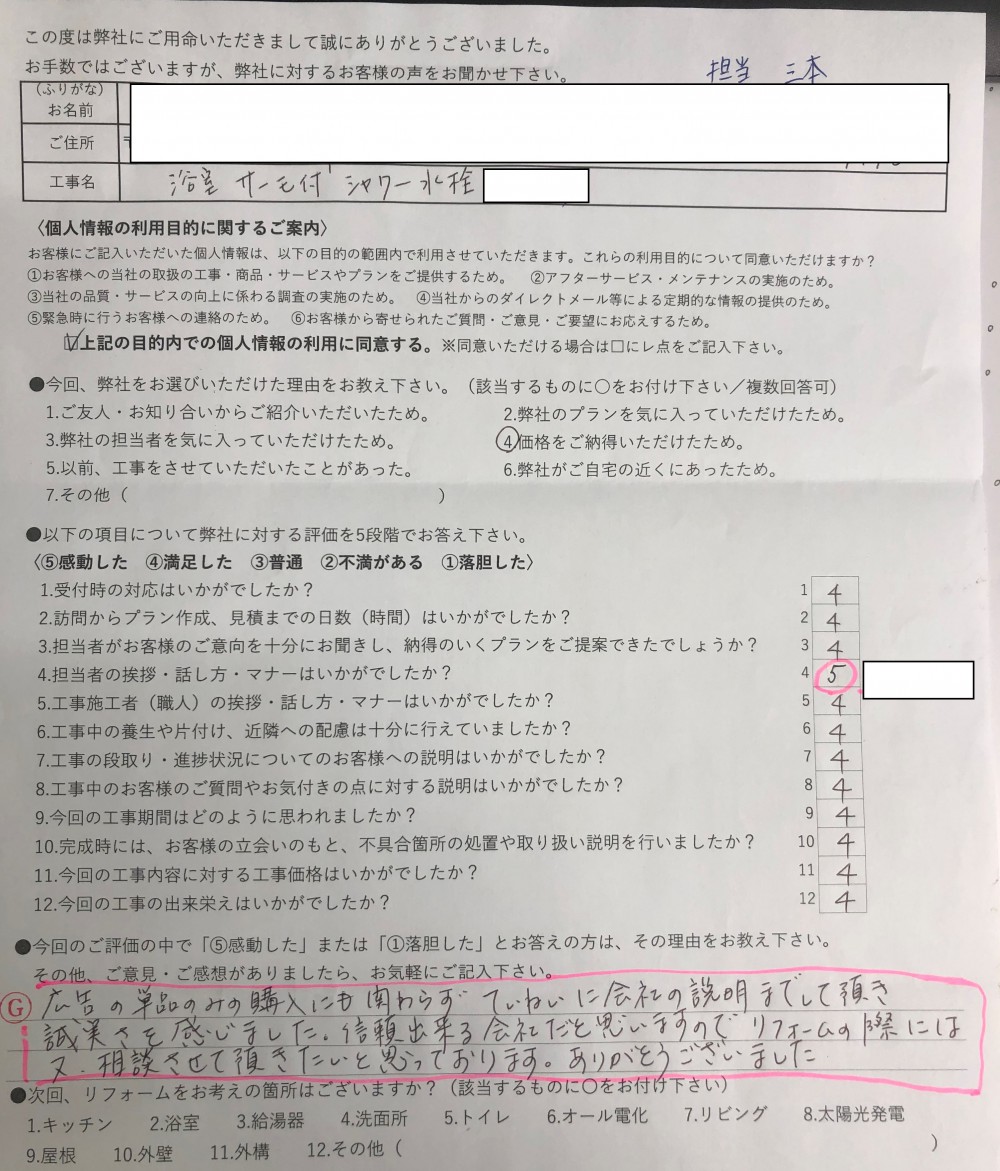 この度は弊社にご用命いただきまして誠にありがとうございました。
お手数ではございますが、弊社に対するお客様の声をお聞かせ下さい。
担当 三本
(ふりがな)
お名前
ご住所
工事名 浴室 サーモ付 シャワー水栓
〈個人情報の利用目的に関するご案内〉
お客様にご記入いただいた個人情報は、以下の目的の範囲内で利用させていただきます。これらの利用目的について同意いただけますか？
①お客様への当社の取扱の工事・商品・サービスやプランをご提供するため。 ②アフターサービス・メンテナンスの実施のため。
③当社の品質・サービスの向上に係わる調査の実施のため。 ④当社からのダイレクトメール等による定期的な情報の提供のため。
⑤緊急時に行うお客様への連絡のため。 ⑥お客様から寄せられたご質問・ご意見・ご要望にお応えするため。
☑上記の目的内での個人情報の利用に同意する。※同意いただける場合は□にレ点をご記入下さい。
●今回、弊社をお選びいただけた理由をお教え下さい。（該当するものに○をお付け下さい／複数回答可）
1.ご友人・お知り合いからご紹介いただいたため。 2.弊社のプランを気に入っていただけたため。
3.弊社の担当者を気に入っていただけたため。 ④価格をご納得いただけたため。
5.以前、工事をさせていただいたことがあった。 6.弊社がご自宅の近くにあったため。
7.その他（ ）
●以下の項目について弊社に対する評価を5段階でお答え下さい。
〈⑤感動した ④満足した ③普通 ②不満がある ①落胆した〉
1.受付時の対応はいかがでしたか？ 1 4
2.訪問からプラン作成、見積までの日数（時間）はいかがでしたか？ 2 4
3.担当者がお客様のご意向を十分にお聞きし、納得のいくプランをご提案できたでしょうか？ 3 4
4.担当者の挨拶・話し方・マナーはいかがでしたか？ 4 5
5.工事施工者（職人）の挨拶・話し方・マナーはいかがでしたか？ 5 4
6.工事中の養生や片付け、近隣への配慮は十分に行えていましたか？ 6 4
7.工事の段取り・進捗状況についてのお客様への説明はいかがでしたか？ 7 4
8.工事中のお客様のご質問やお気付きの点に対する説明はいかがでしたか？ 8 4
9.今回の工事期間はどのように思われましたか？ 9 4
10.完成時には、お客様の立会いのもと、不具合箇所の処置や取り扱い説明を行いましたか？ 10 4
11.今回の工事内容に対する工事価格はいかがでしたか？ 11 4
12.今回の工事の出来栄えはいかがでしたか？ 12 4
●今回のご評価の中で「⑤感動した」または「①落胆した」とお答えの方は、その理由をお教え下さい。
その他、ご意見・ご感想がありましたら、お気軽にご記入下さい。
Ⓖ 広告の単品のみの購入にも関わらず ていねいに会社の説明までして頂き
誠実さを感じました。信頼出来る会社だと思いますので リフォームの際には
又、相談させて頂きたいと思っております。ありがとうございました
●次回、リフォームをお考えの箇所はございますか？（該当するものに○をお付け下さい）
1.キッチン 2.浴室 3.給湯器 4.洗面所 5.トイレ 6.オール電化 7.リビング 8.太陽光発電
9.屋根 10.外壁 11.外構 12.その他（ ）